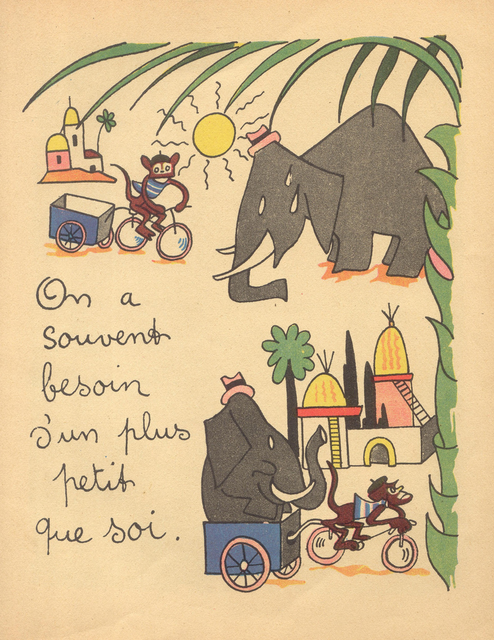 On a
souvent
besoin
d'un plus
petit
que soi.